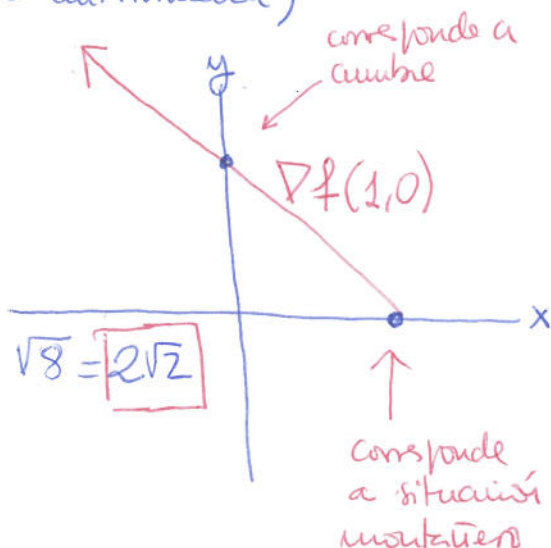 corresponde a
cumbre
y
∇f(1,0)
x
√8 = 2√2
corresponde
a situación
montañero